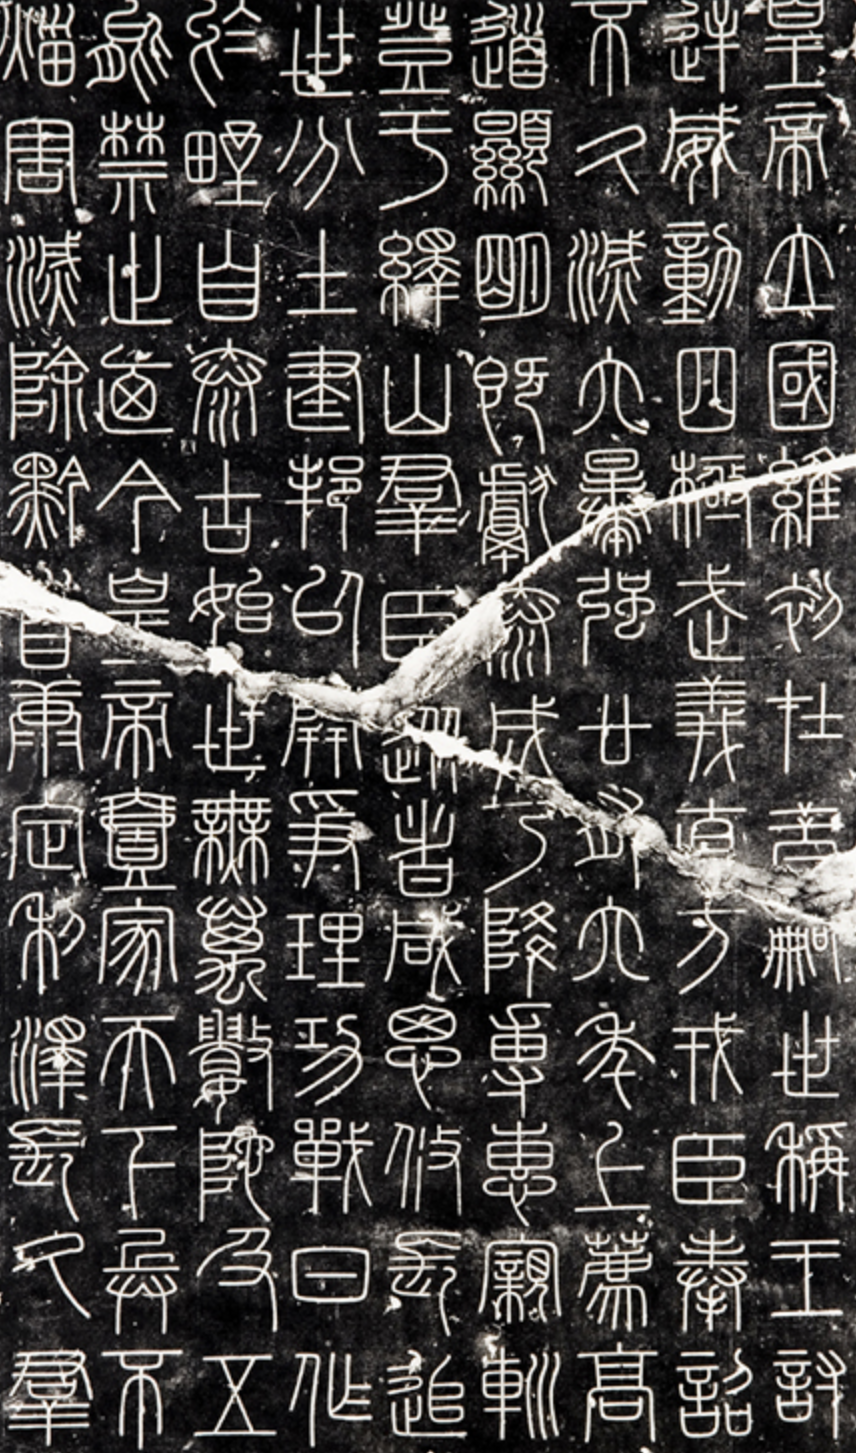 皇帝立國維初在昔嗣世稱王討
逆威動四極武義直方戎臣奉詔
不久滅六暴強廿有六年上薦高
道顯明既獻泰成乃降尃惠親巡
登于繹山群臣從者咸思攸長追
世分土建邦以開爭理功戰日作
於野自泰古始世無萬數陀及五
能禁止迺今皇帝壹家天下兵不
災害滅除黔首康定利澤長久群